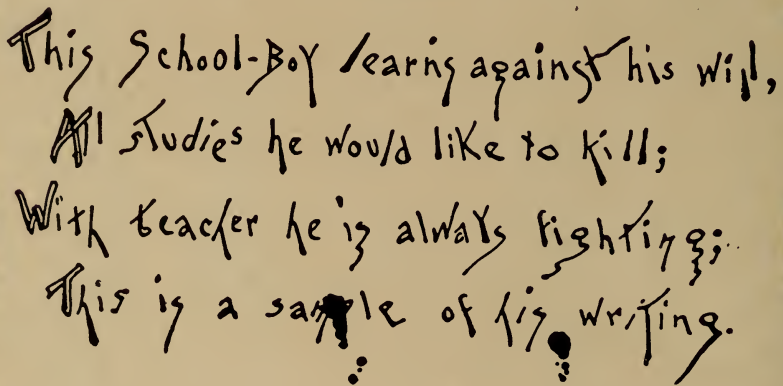 This School-Boy learns against his will,
All studies he would like to kill;
With teacher he is always fighting;
This is a sample of his writing.